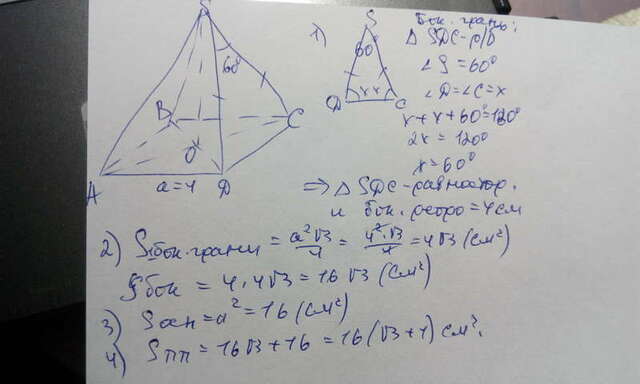 S
60°
B
C
O
A
a=4
D
1)
S
60°
x x
D
C
Бок. грань:
Δ SDC – р/б
∠S = 60°
∠D = ∠C = x
x + x + 60° = 180°
2x = 120°
x = 60°
⇒ Δ SDC – равностор.
и бок. ребро = 4 см
2) S₁бок. грани = a²√3/4 = 4²·√3/4 = 4√3 (см²)
Sбок = 4·4√3 = 16√3 (см²)
3) Sосн = a² = 16 (см²)
4) Sпп = 16√3 + 16 = 16(√3+1) см².